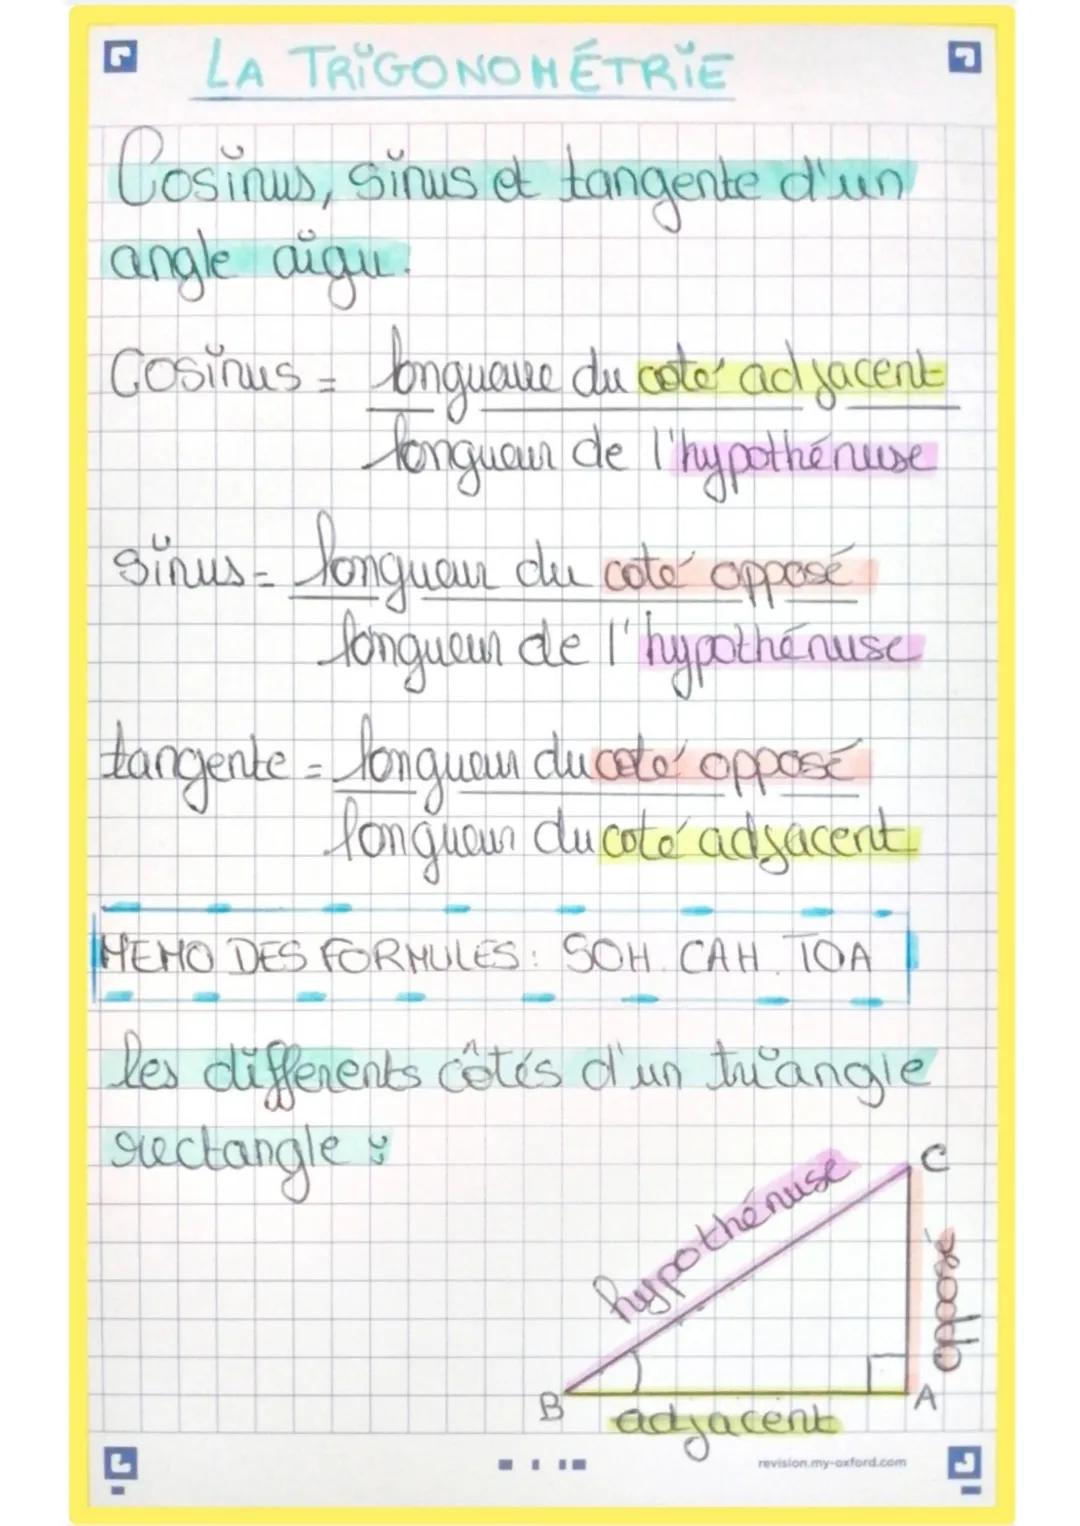 LA TRIGONOMÉTRIE
Cosinus, sinus et tangente d'un
angle aigu.
Cosinus = longueure du coté adjacent
longueur de l'hypothénuse
sinus = longueur du coté opposé
longueur de l'hypothénuse
tangente = longueur du coté opposé
longueur du coté adjacent
MEMO DES FORMULES : SOH. CAH. TOA
les différents côtés d'un triangle
rectangle :
C
hypothénuse
opposé
B
A
adjacent
revision.my-oxford.com